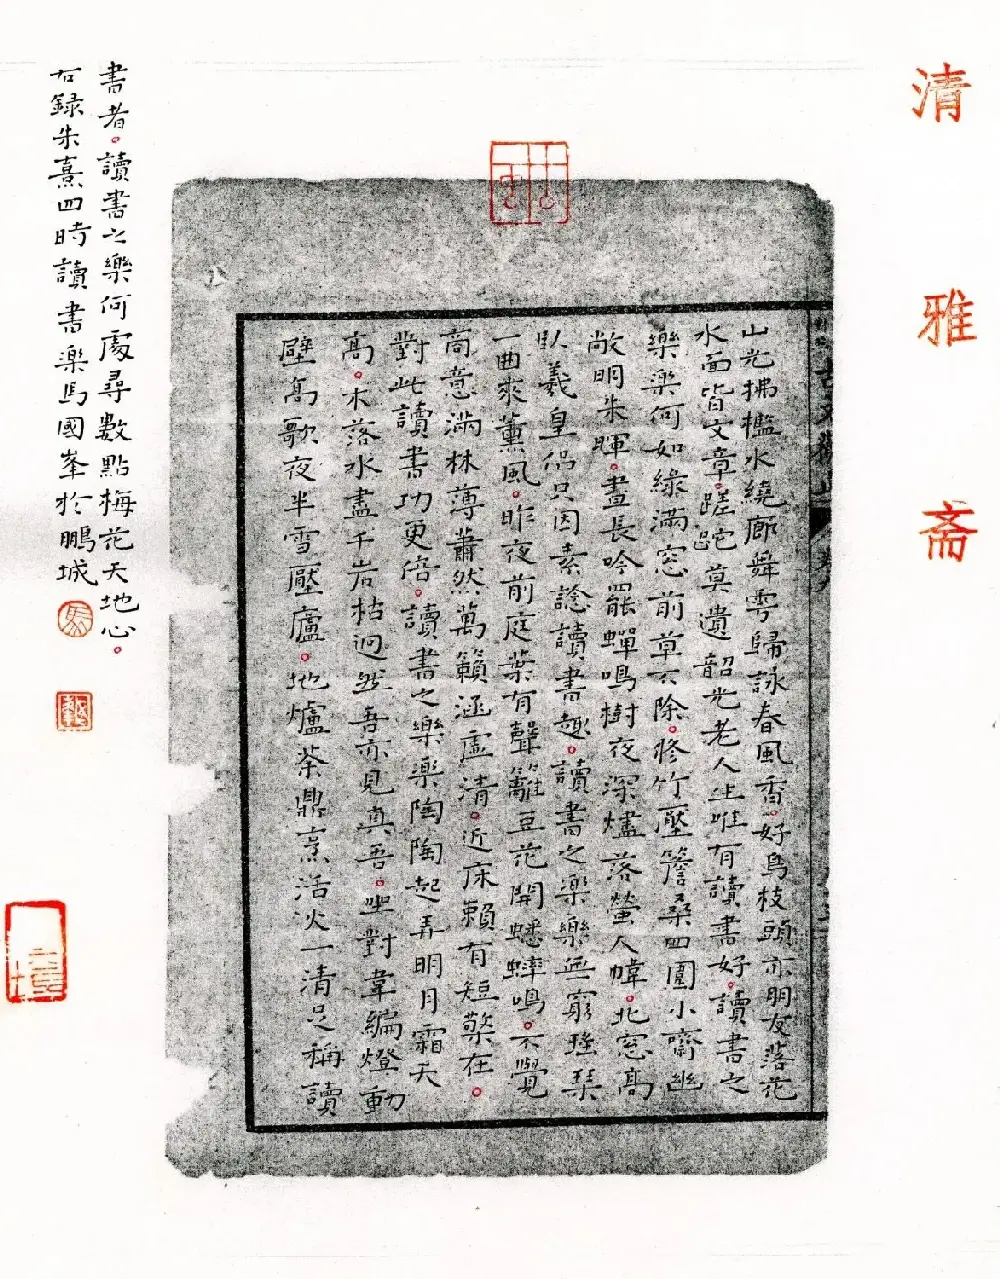 清雅斋
山光拂檻水繞廊舞雩歸詠春風香。好鳥枝頭亦朋友落花
水面皆文章。蹉跎莫遺韶光老人生唯有讀書好。讀書之
樂樂何如綠滿窓前草不除。修竹壓簷桑四圍小齋幽
敞明朱暉。晝長吟罷蟬鳴樹夜深燼落螢入幃。北窓高
臥羲皇侶只因素諗讀書趣。讀書之樂樂無窮瑤琴
一曲來薰風。昨夜前庭葉有聲籬豆花開蟋蟀鳴。不覺
商意滿林薄蕭然萬籟涵虛清。近床賴有短檠在。
對此讀書功更倍。讀書之樂樂陶陶起弄明月霜天
高。木落水盡千岩枯迥然吾亦見真吾。坐對韋編燈動
壁高歌夜半雪壓廬。地爐茶鼎烹活火一清足稱讀
書者。讀書之樂何處尋數點梅花天地心。
右録朱熹四時讀書樂馬國峯於鵬城